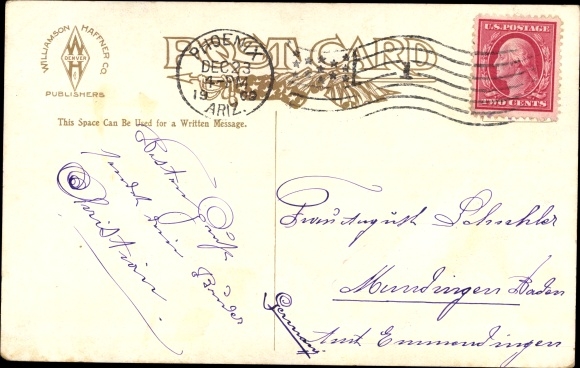 WILLIAMSON HAFFNER CO.
DENVER
PUBLISHERS
POST CARD
PHOENIX
DEC 23
1909
ARIZ.
U.S. POSTAGE
TWO CENTS
This Space Can Be Used for a Written Message.
Besten Gruß
sendet dein Bruder
Christian.
Frau August
Mundingen Baden
Amt Emmendingen
Germany.